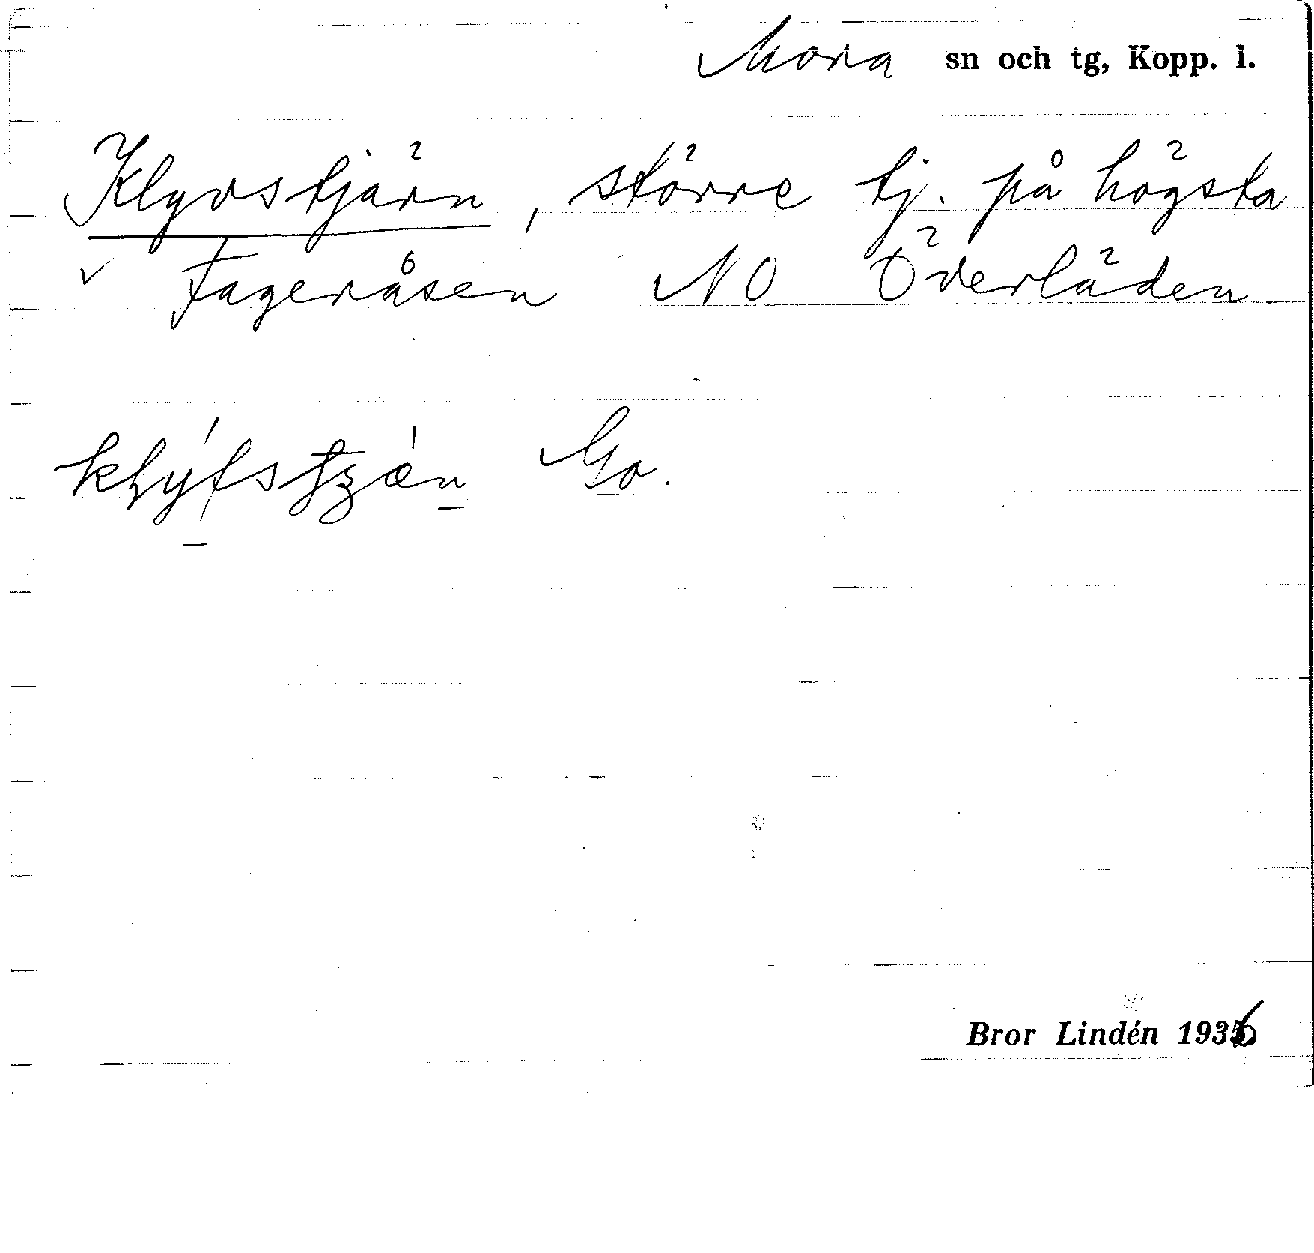 Mora sn och tg, Kopp. l.
Klyvstjärn, större tj. på högsta
✓ Fageråsen NO Överläden
Go.
Bror Lindén 1936